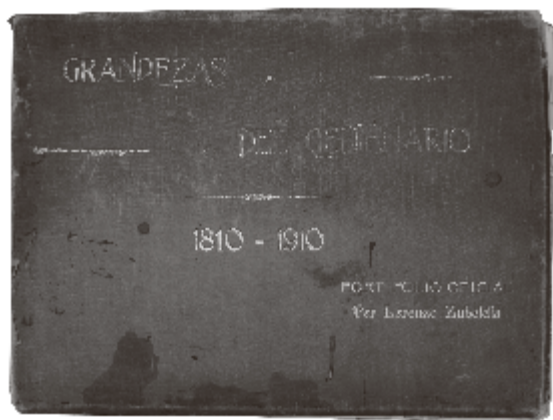 GRANDEZAS
DEL CENTENARIO
1810 - 1910
PORTFOLIO OFICIAL
Por Lorenzo